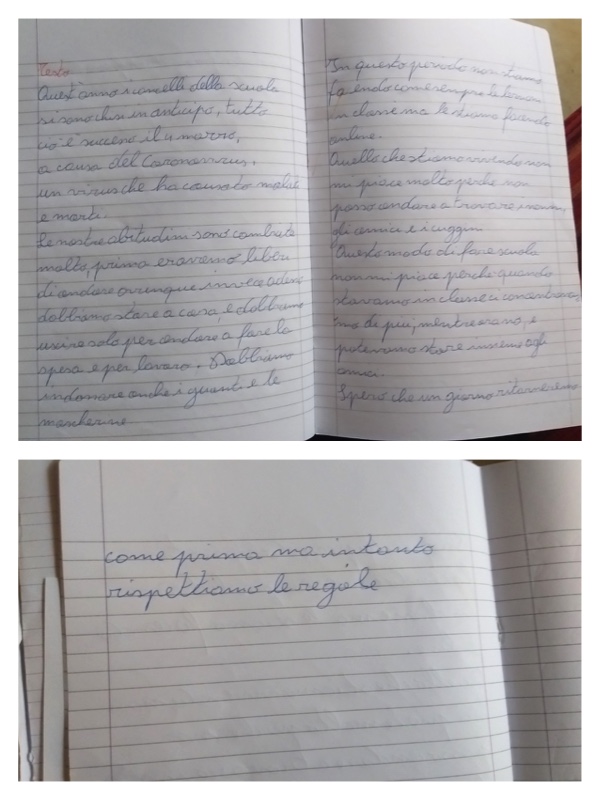 Testo
Quest'anno i cancelli della scuola
si sono chiusi in anticipo, tutto
ciò è successo il 4 marzo,
a causa del Coronavirus,
un virus che ha causato malati
e morti.
Le nostre abitudini sono cambiate
molto, prima eravamo liberi
di andare ovunque invece adesso
dobbiamo stare a casa, e dobbiamo
uscire solo per andare a fare la
spesa e per lavoro. Dobbiamo
indossare anche i guanti e le
mascherine.
In questo periodo non stiamo
facendo come sempre le lezioni
in classe ma le stiamo facendo
online.
Quello che stiamo vivendo non
mi piace molto perché non
posso andare a trovare i nonni,
gli amici e i cuggini
Questo modo di fare scuola
non mi piace perché quando
stavamo in classe ci concentrava
mo de più, mentre orano, e
potevamo stare insieme agli
amici.
Spero che un giorno ritorneremo
come prima ma intanto
rispettiamo le regole